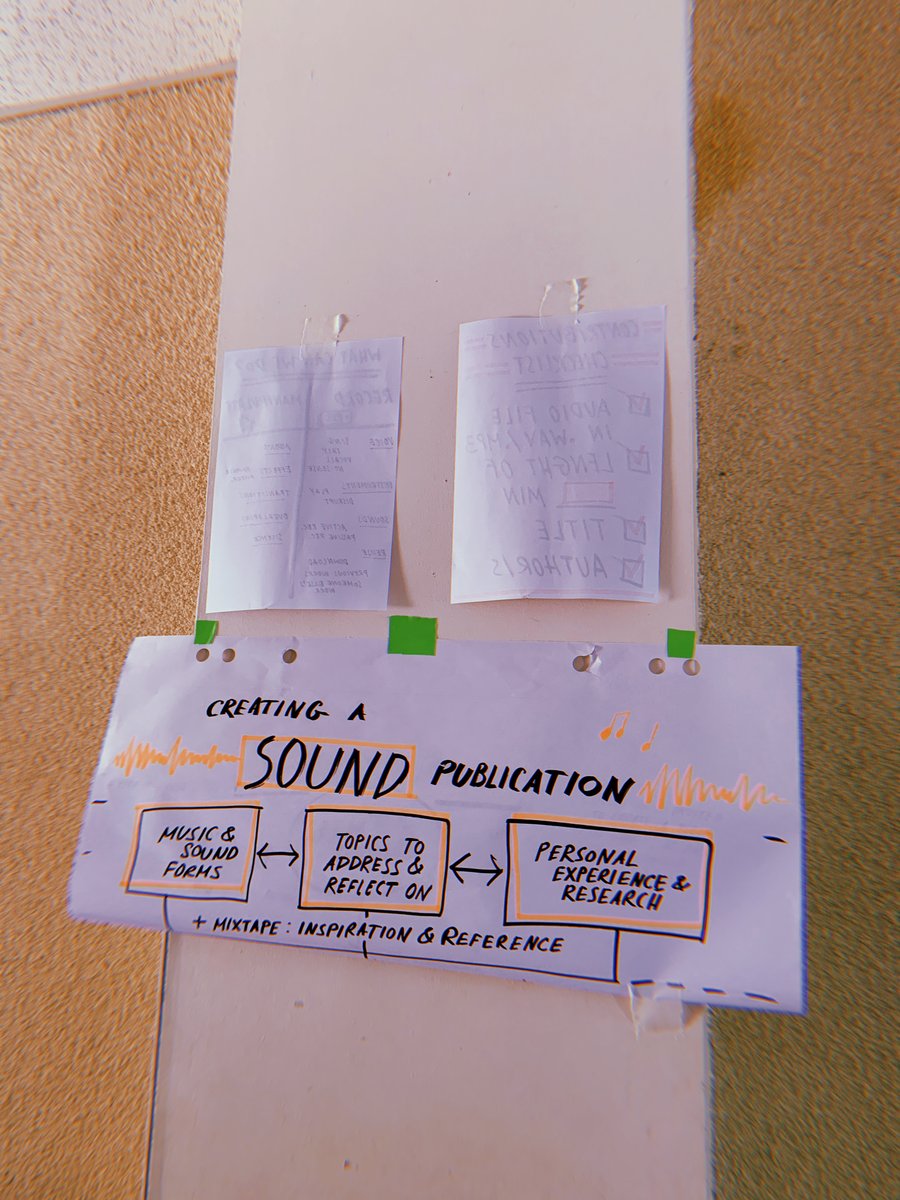 WHAT CAN WE DO?
RECORD MANIPULATE
VOICE
SING
TALK
VOCALS
INSTRUMENTS PLAY
DISRUPT
SOUNDS ACTIVE REC.
PASSIVE REC.
DOWNLOAD
PREVIOUS WORKS
SOMEONE ELSE'S
WORK
EFFECTS
TRANSITIONS
OVERLAPPING
SILENCE
CONTRIBUTIONS
CHECKLIST
AUDIO FILE
IN .WAV/.MP3
LENGHT OF
MIN
TITLE
AUTHOR/S
CREATING A
SOUND PUBLICATION
MUSIC &
SOUND
FORMS
TOPICS TO
ADDRESS &
REFLECT ON
PERSONAL
EXPERIENCE &
RESEARCH
+ MIXTAPE : INSPIRATION & REFERENCE